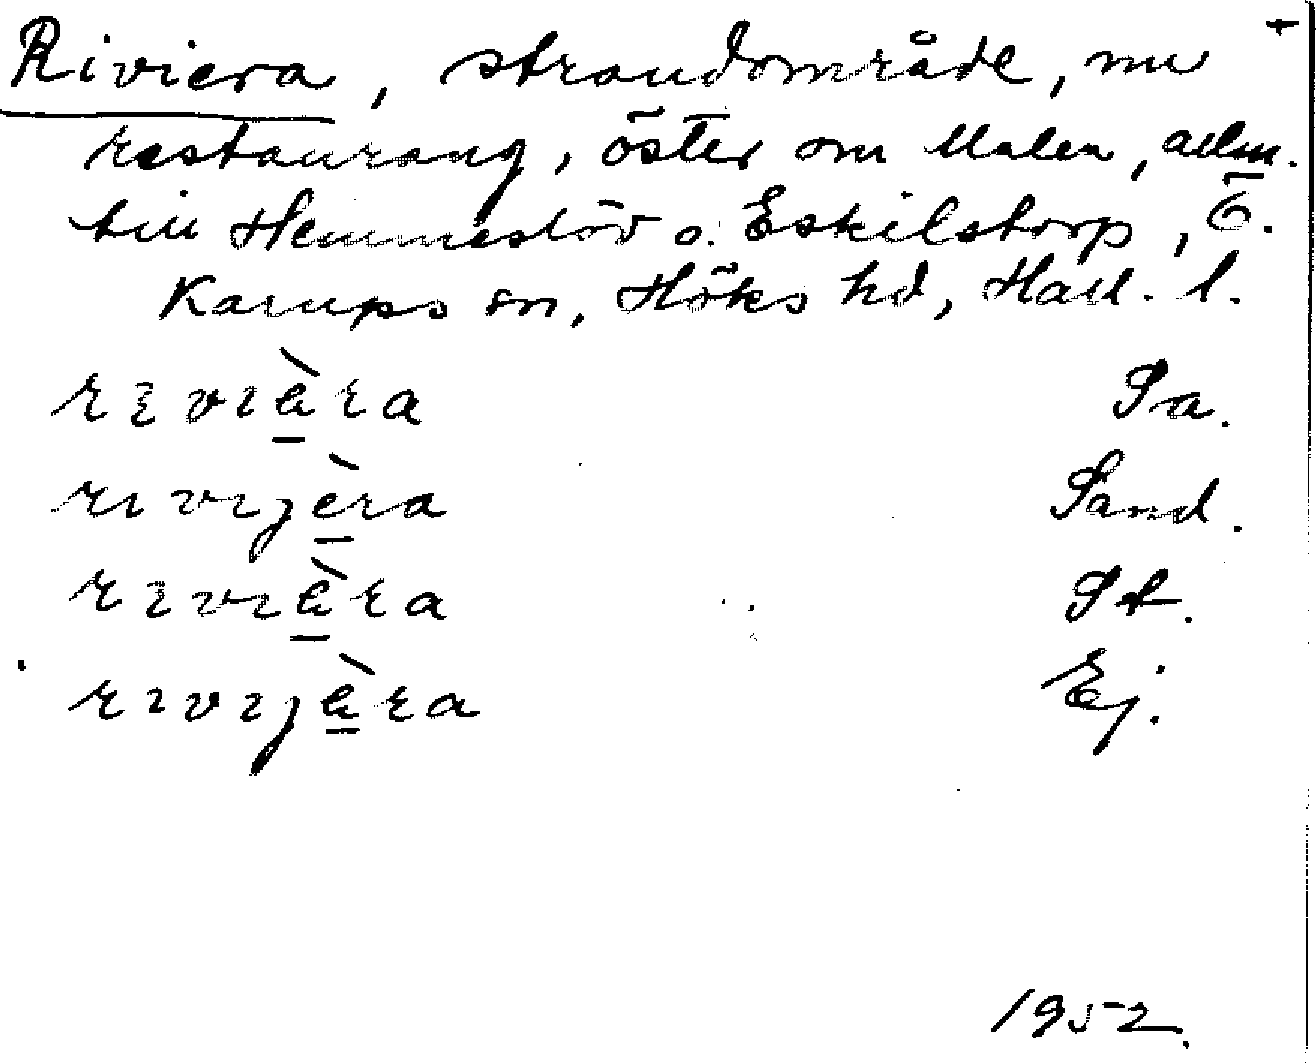 Riviera, strandområde, nu +
restaurang, öster om Malen, allm.
till Hemmeslöv o. Eskilstorp, Ö.
Karups sn, Höks hd, Hall. l.
rɪvɪæ̀ra Sa.
rɪvɪjèra Sand.
rɪvɪæ̀ra St.
rɪvɪjæ̀ra Ej.
1952.